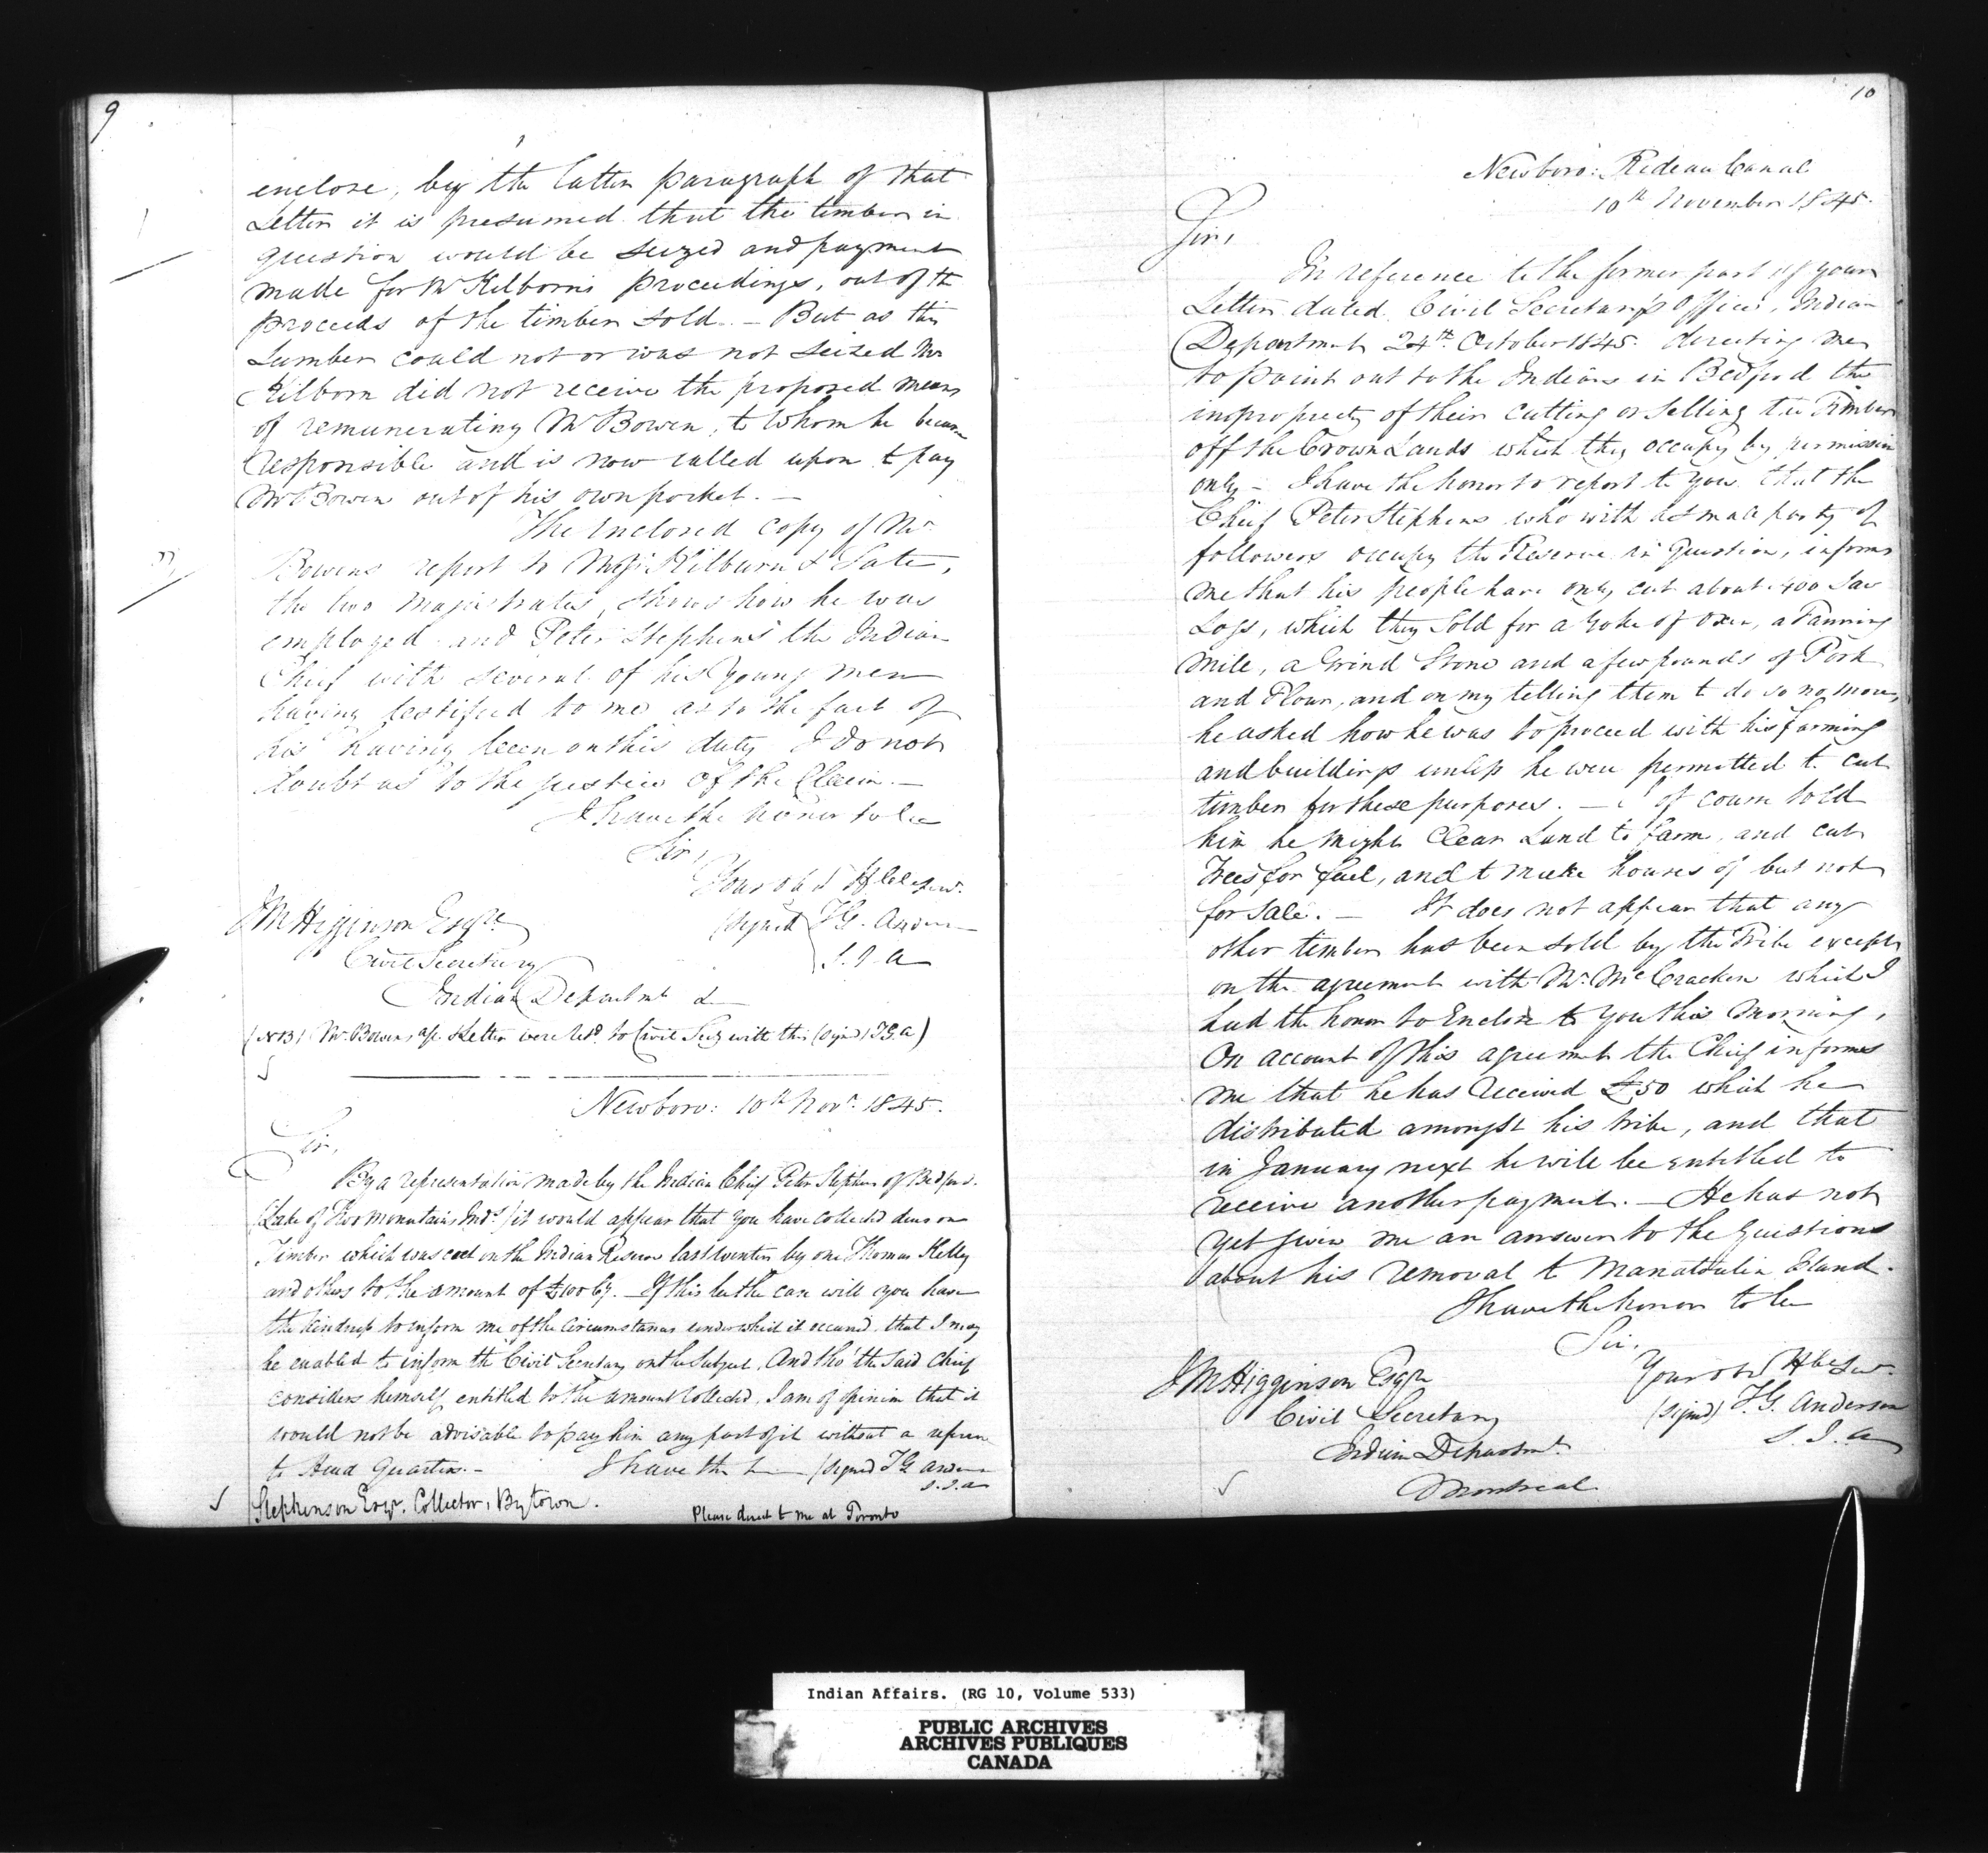 9
enclose, by the latter paragraph of that
Letter it is presumed that the timber in
question would be seized and payment
made for Mr Kilborn's proceedings, out of the
proceeds of the timber sold. — But as this
Lumber could not or was not seized Mr
Kilborn did not receive the proposed means
of remunerating Mr Bowen, to whom he became
responsible and is now called upon to pay
Mr Bowen out of his own pocket. —
The Inclosed copy of Mr
Bowens report to Kilburn &
the two Magistrates, shews how he was
employed and Peter Stephens the Indian
Chief with several of his Young men
having testified to me as to the fact of
his having been on this duty I do not
doubt as to the justice of the Claim. —
I have the honor to be
Sir,
Your obt Hble Ser.
JM Higginson Esqre (signed TG. Anderson
Civil Secretary S. I. A
Indian Department &
(NB) Mr Bowens & Letter were retd. to Civil Secy with this (signd) TG.A)
Newboro: 10th Novr. 1845.
Sir,
By a representation made by the Indian Chief Peter Stephens of Bedford.
(Lake of Two Mountains Inds.) it would appear that you have collected dues on
Timber which was cut on the Indian Reserve last winter by one Thomas Kelly
and others to the amount of £100 Cy. — If this be the case will you have
the kindness to inform me of the circumstances under which it occurred. that I may
be enabled to inform the Civil Secretary on the Subject. And tho' the said Chief
considers himself entitled to the amount collected, I am of opinion that it
would not be advisable to pay him any part of it without a reference
to Head Quarters. — I have the h— (signed TG Anderson
S. I. A
Stephenson Esqr. Collector, Bytown.
Please direct to me at Toronto
10
Newboro: Rideau Canal
10th November 1845.
Sir,
In reference to the former part of your
Letter dated Civil Secretary's Office, Indian
Department 24th October 1845. directing me
to point out to the Indians in Bedford the
impropriety of their cutting or selling the Timber
off the Crown Lands which they occupy by permission
only — I have the honor to report to you that the
Chief Peter Stephens who with a small party of
followers occupy the Reserve in Question, informs
me that his people have only cut about 400 Saw
Logs, which they sold for a Yoke of Oxen, a Fanning
Mile, a Grind Stone and a few pounds of Pork
and Flour, and on my telling them to do so no more,
he asked how he was to proceed with his farming
and buildings unless he were permitted to cut
timber for these purposes. — I of course told
him he might Clear Land to farm, and cut
Trees for fuel, and to make houses of but not
for sale. — It does not appear that any
other timber has been sold by the Tribe except
on the agreement with Mr. McCracken which I
had the honor to Enclose to you this Morning.
On account of this agreement the Chief informs
me that he has received £50 which he
distributed amongst his tribe, and that
in January next he will be entitled to
receive another payment. — He has not
yet given me an answer to the questions
about his removal to Manatoulin Island.
I have the honor to be
Sir,
Your obt Hble Ser.
JM Higginson Esqre (signed) T.G. Anderson
Civil Secretary S I. A
Indian Department
Montreal
Indian Affairs. (RG 10, Volume 533)
PUBLIC ARCHIVES
ARCHIVES PUBLIQUES
CANADA